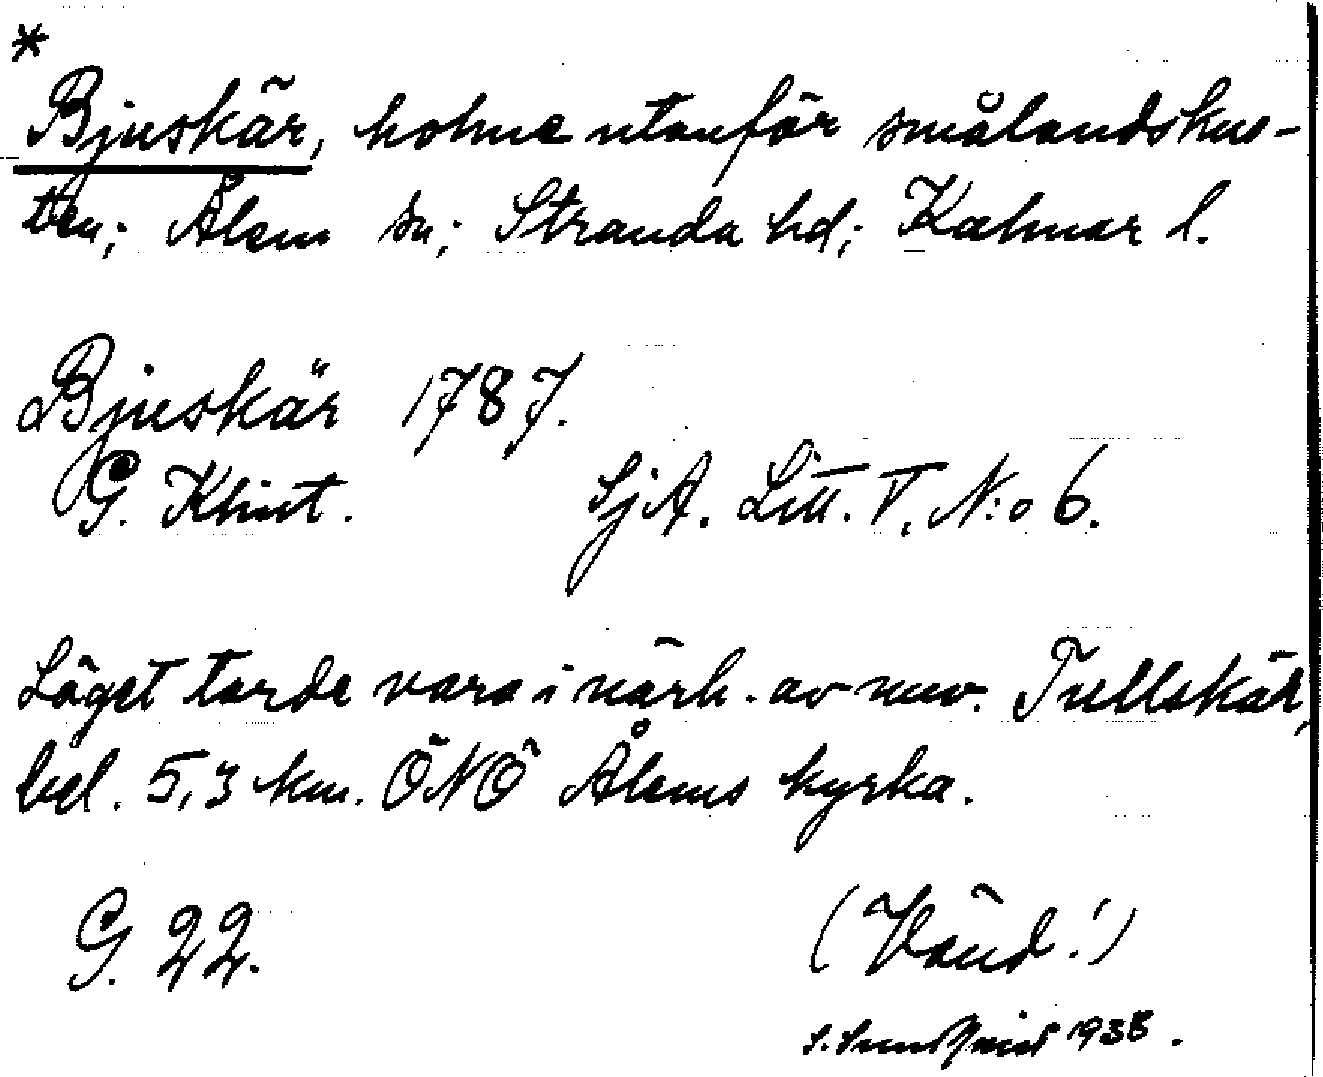 *
Bjuskär, holme utanför smålandskus-
ten; Ålem sn; Stranda hd; Kalmar l.
Bjuskär 1787.
G. Klint. SjA. Litt. V. N:o 6.
Läget torde vara i närh. av nuv. Tullskär,
bel. 5,3 km. ÖNÖ Ålems kyrka.
G. 22. (Vänd!)
S. Sundqvist 1938.